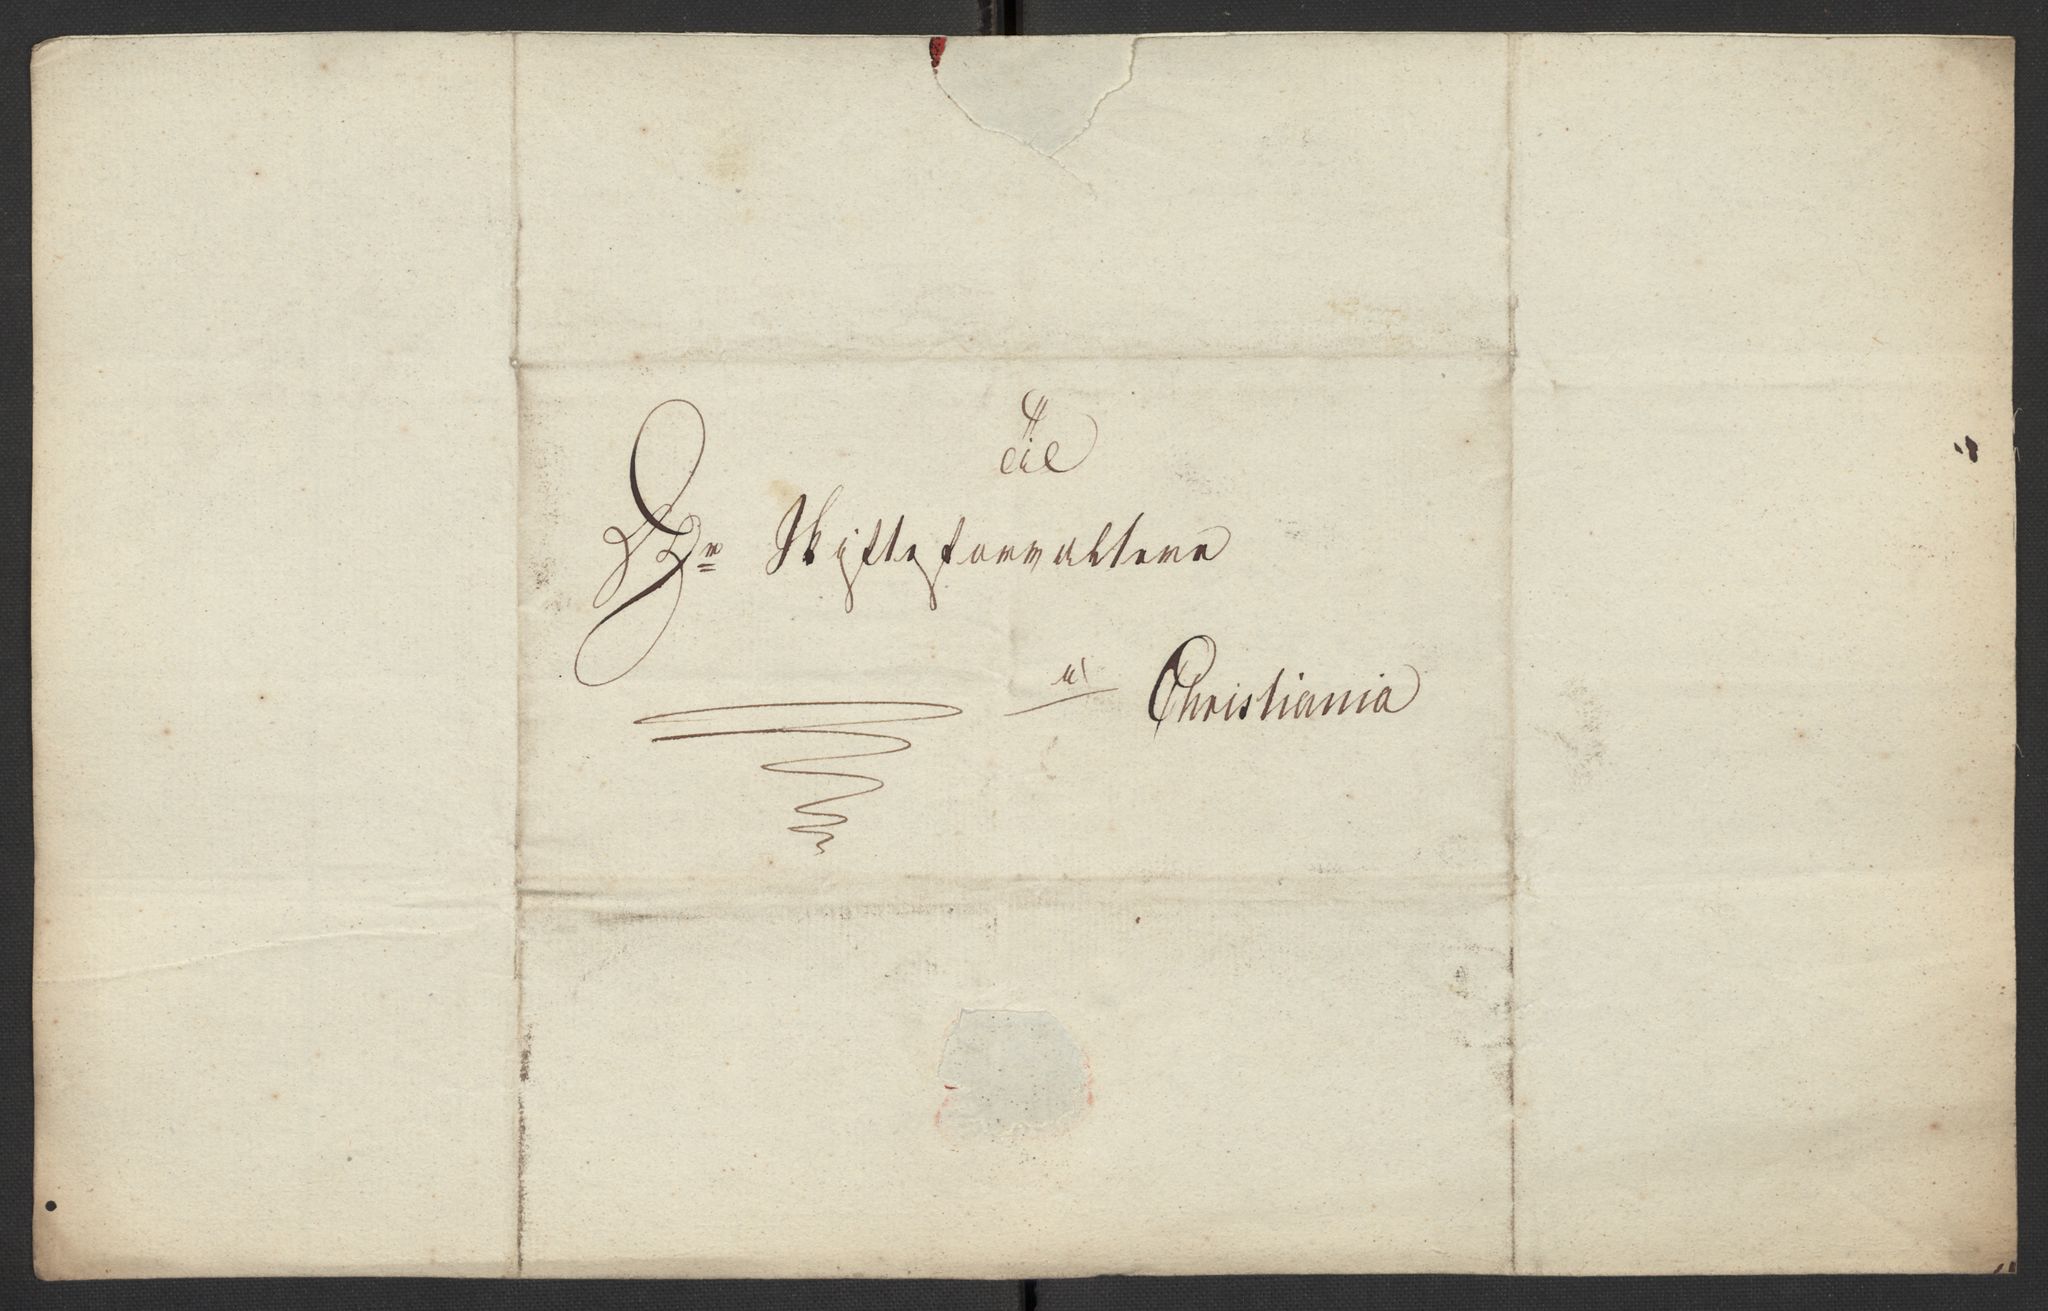 Til
Hr Skifteforvalteren
a
Christiania